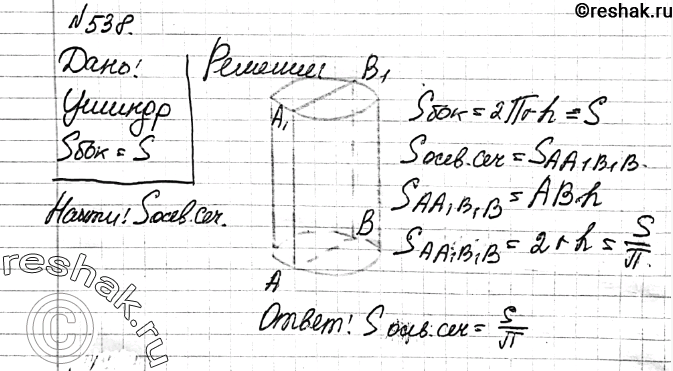 ©reshak.ru
№538.
Дано:
Цилиндр
Sбок = S
Найти: Sосев.сеч.
Решение
B₁
A₁
B
A
Sбок = 2πrh = S
Sосев.сеч = SAA₁B₁B.
SAA₁B₁B = AB·h
SAA₁B₁B = 2rh = S/π.
Ответ: Sосев.сеч = S/π
reshak.ru
©